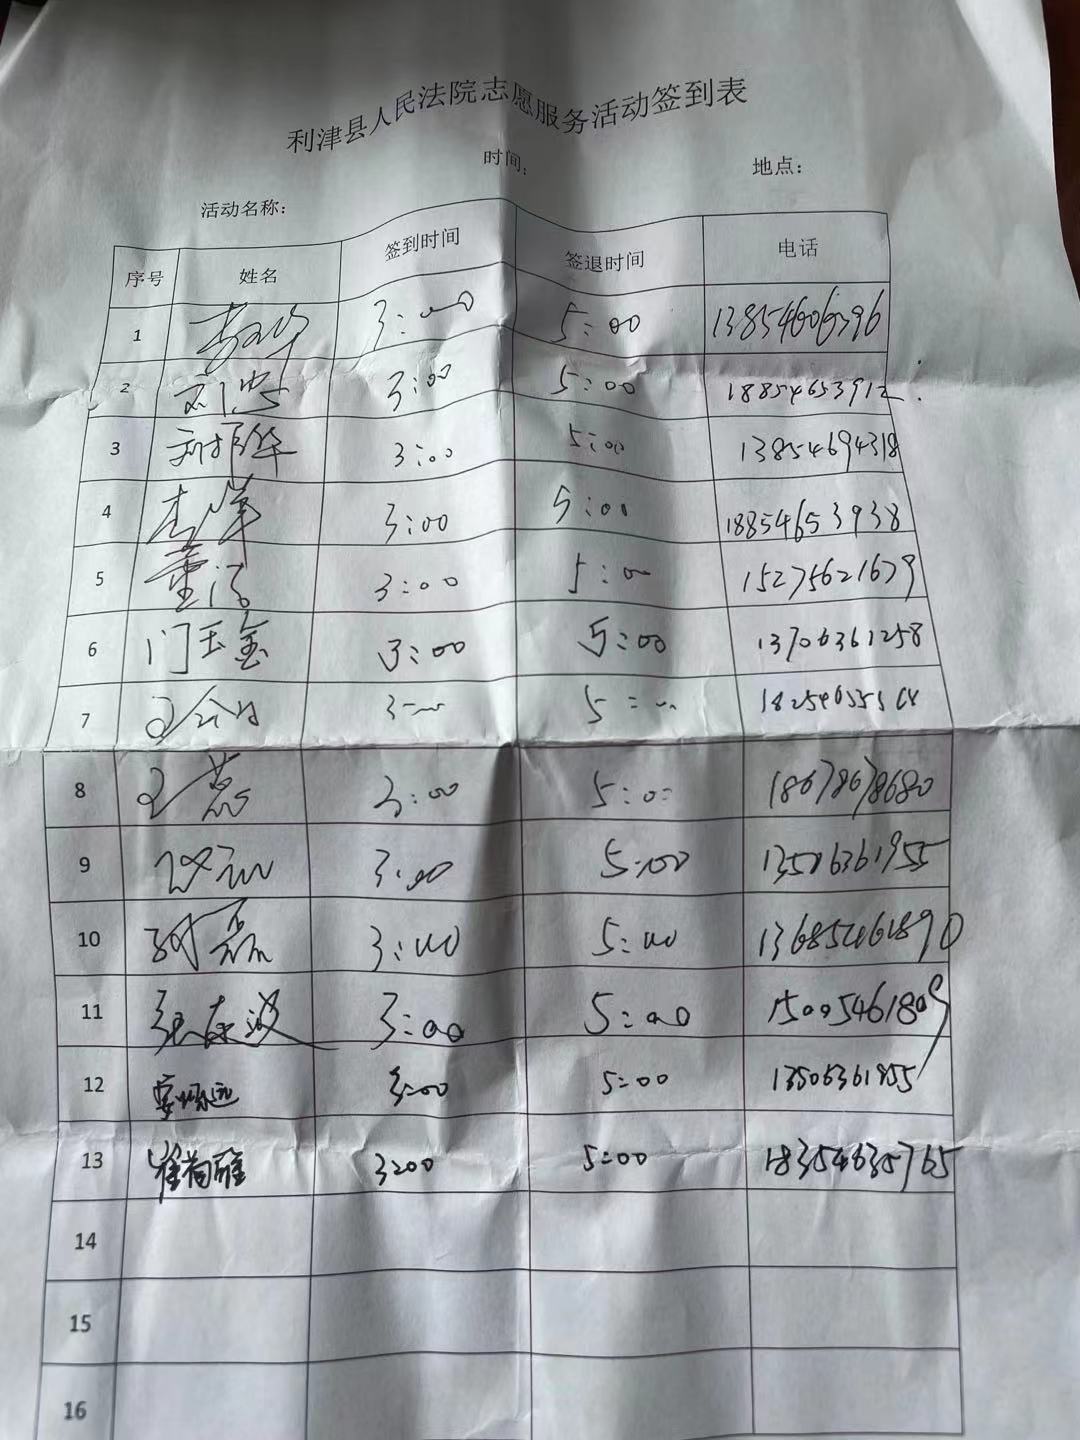 利津县人民法院志愿服务活动签到表
时间: 地点:
活动名称:
序号 姓名 签到时间 签退时间 电话
1 3:00 5:00 13854606396
2 刘忠 3:00 5:00 18854653912
3 刘振华 3:00 5:00 13854694318
4 3:00 5:00 18854653938
5 3:00 5:00 15275621679
6 门玉金 3:00 5:00 13706361258
7 3:00 5:00
8 王慧 3:00 5:00 18678678680
9 3:00 5:00 13506361955
10 孙磊 3:00 5:00 13685461890
11 张东波 3:00 5:00 15005461809
12 3:00 5:00 13506361955
13 崔荷雅 3:00 5:00 18354635765
14
15
16